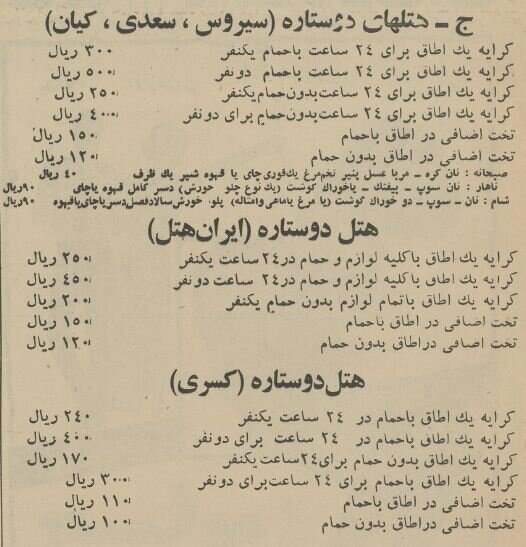 ج ـ هتلهای دوستاره (سیروس ، سعدی ، کیان)
کرایه یك اطاق برای ۲۴ ساعت باحمام یکنفر ۳۰۰ ریال
کرایه یك اطاق برای ۲۴ ساعت باحمام دونفر ۵۰۰ ریال
کرایه یك اطاق برای ۲۴ ساعت بدون حمام یکنفر ۲۵۰ ریال
کرایه یك اطاق برای ۲۴ ساعت بدون حمام برای دونفر ۴۰۰ ریال
تخت اضافی در اطاق باحمام ۱۵۰ ریال
تخت اضافی در اطاق بدون حمام ۱۲۰ ریال
صبحانه : نان کره ـ مربا عسل پنیر تخم‌مرغ یك‌قوری چای یا قهوه شیر یك ظرف ۴۰ ریال
ناهار : نان سوپ ـ بیفتك ـ یاخوراك گوشت (یك نوع چلو خورش) دسر کامل قهوه یاچای ۹۰ریال
شام : نان ـ سوپ ـ دو خوراك گوشت (یا مرغ یاماهی وامثاله) پلو، خورش سالادفصل‌دسرچای‌یاقهوه ۹۰ریال
هتل دوستاره (ایران‌هتل)
کرایه یك اطاق باکلیه لوازم و حمام در۲۴ ساعت یکنفر ۲۵۰ ریال
کرایه یك اطاق باکلیه لوازم و حمام در۲۴ ساعت دونفر ۴۵۰ ریال
کرایه یك اطاق باتمام لوازم بدون حمام یکنفر ۲۰۰ ریال
تخت اضافی در اطاق باحمام ۱۵۰ ریال
تخت اضافی دراطاق بدون حمام ۱۲۰ ریال
هتل‌دوستاره (کسری)
کرایه یك اطاق باحمام در ۲۴ ساعت یکنفر ۲۴۰ ریال
کرایه یك اطاق باحمام در ۲۴ ساعت برای دونفر ۴۰۰ ریال
کرایه یك اطاق بدون حمام برای۲۴ساعت یکنفر ۱۷۰ ریال
کرایه یك اطاق باحمام برای ۲۴ ساعت‌برای دونفر ۳۰۰ ریال
تخت اضافی در اطاق باحمام ۱۱۰ ریال
تخت اضافی دراطاق بدون حمام ۱۰۰ ریال